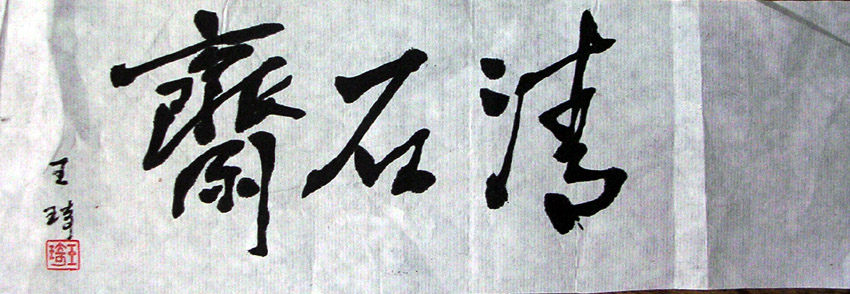 清石齋
王琦
王琦